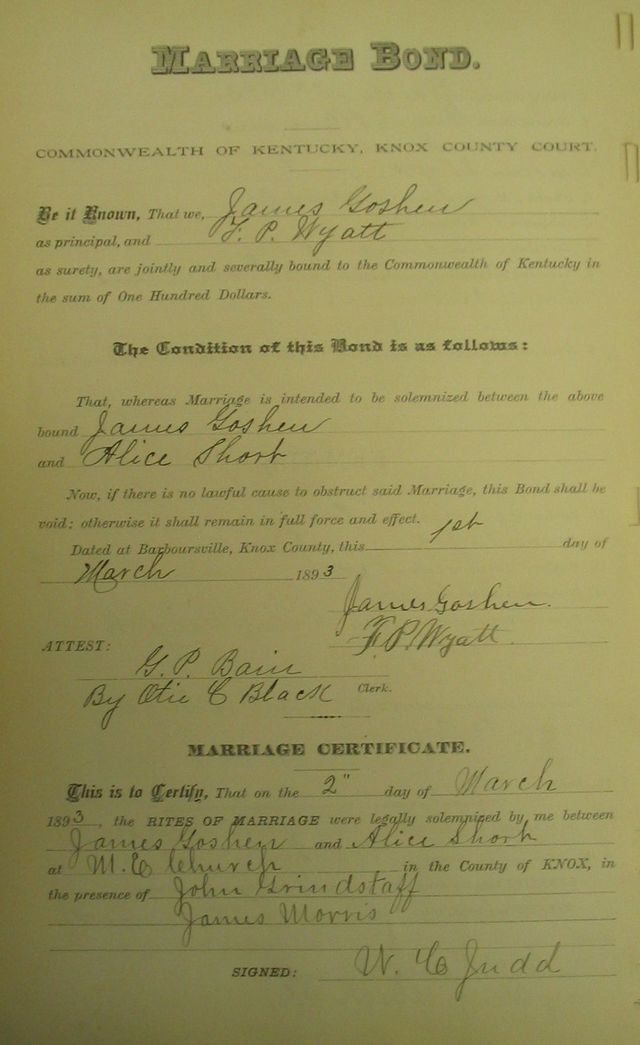 MARRIAGE BOND.
COMMONWEALTH OF KENTUCKY, KNOX COUNTY COURT.
Be it Known, That we, James Goshen
as principal, and F. P. Wyatt
as surety, are jointly and severally bound to the Commonwealth of Kentucky in
the sum of One Hundred Dollars.
The Condition of this Bond is as follows:
That, whereas Marriage is intended to be solemnized between the above
bound James Goshen
and Alice Short
Now, if there is no lawful cause to obstruct said Marriage, this Bond shall be
void; otherwise it shall remain in full force and effect.
Dated at Barboursville, Knox County, this 1st day of
March 1893
James Goshen.
F. P. Wyatt
ATTEST:
G. P. Bain
By Otie C Black Clerk.
MARRIAGE CERTIFICATE.
This is to Certify, That on the 2" day of March
1893, the RITES OF MARRIAGE were legally solemnized by me between
James Goshen and Alice Short
at M. E Church in the County of KNOX, in
the presence of John Grindstaff
James Morris
SIGNED: W. C Judd